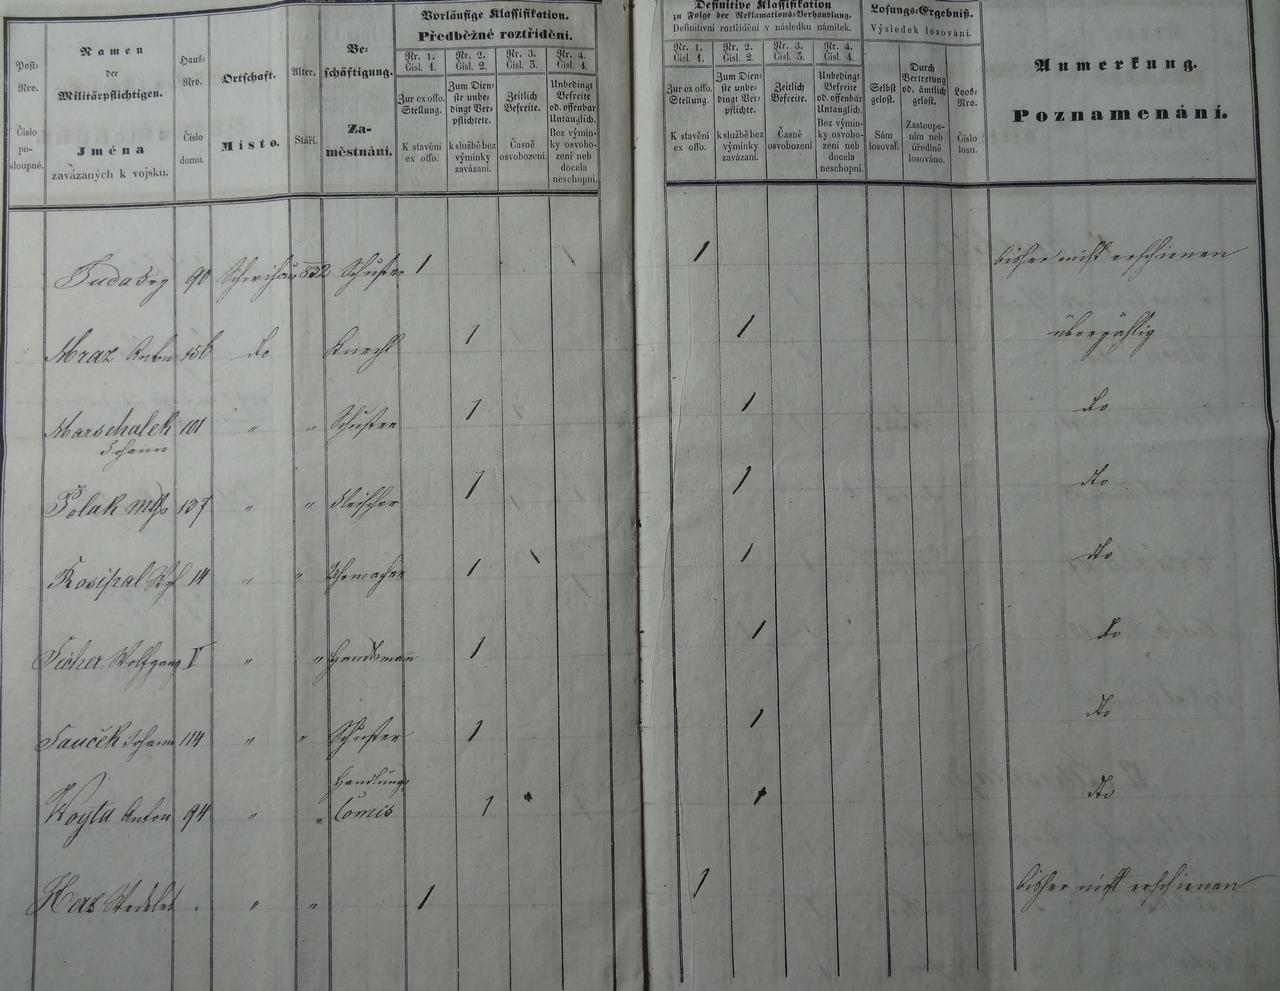 Post-
Nro.
Číslo
po-
sloupné.
Namen
der
Militärpflichtigen.
Jména
zavázaných k vojsku.
Haus-
Nro.
Číslo
domu.
Ortschaft.
Místo.
Alter.
Stáří.
Be-
schäftigung.
Za-
městnání.
Vorläufige Klassifikation.
Předběžné roztřídění.
Nr. 1.
Čísl. 1.
Zur ex offo.
Stellung.
K stavění
ex offo.
Nr. 2.
Čísl. 2.
Zum Dien-
ste unbe-
dingt Ver-
pflichtete.
k službě bez
výminky
zavázaní.
Nr. 3.
Čísl. 3.
Zeitlich
Befreite.
Časně
osvobození.
Nr. 4.
Čísl. 4.
Unbedingt
Befreite
od. offenbar
Untauglich.
Bez výmin-
ky osvobo-
zení neb
docela
neschopní.
Definitive Klassifikation
zu Folge der Reklamations-Verhandlung.
Definitivní roztřídění v následku námitek.
Nr. 1.
Čísl. 1.
Zur ex offo.
Stellung.
K stavění
ex offo.
Nr. 2.
Čísl. 2.
Zum Dien-
ste unbe-
dingt Ver-
pflichtete.
k službě bez
výminky
zavázaní.
Nr. 3.
Čísl. 3.
Zeitlich
Befreite.
Časně
osvobození
Nr. 4.
Čísl. 4.
Unbedingt
Befreite
od. offenbar
Untauglich.
Bez výmin-
ky osvobo-
zení neb
docela
neschopní.
Losungs-Ergebniß.
Výsledek losování.
Selbst
gelost.
Sám
losoval.
Durch
Vertretung
od. ämtlich
gelost.
Zastoupe-
ním neb
úředlně
losováno.
Loos-
Nro.
Číslo
losu.
Anmerkung.
Poznamenání.
90 Schwihau 832 Schuster 1 1 bisher nicht erschienen
Mraz Anton 156 do Knecht 1 1 überzählig
Marschalek 101 " " Schuster 1 1 dto
Johann
Polak 137 " " Fleischer 1 1 dto
14 " " Uhrmacher 1 1 dto
Wolfgang V " " Handelsmann 1 1 do
Johann 114 " " Schuster 1 1 dto
Handlungs
Woyta Anton 94 " " Comis 1 1 dto
Herz " " 1 1 bisher nicht erschienen